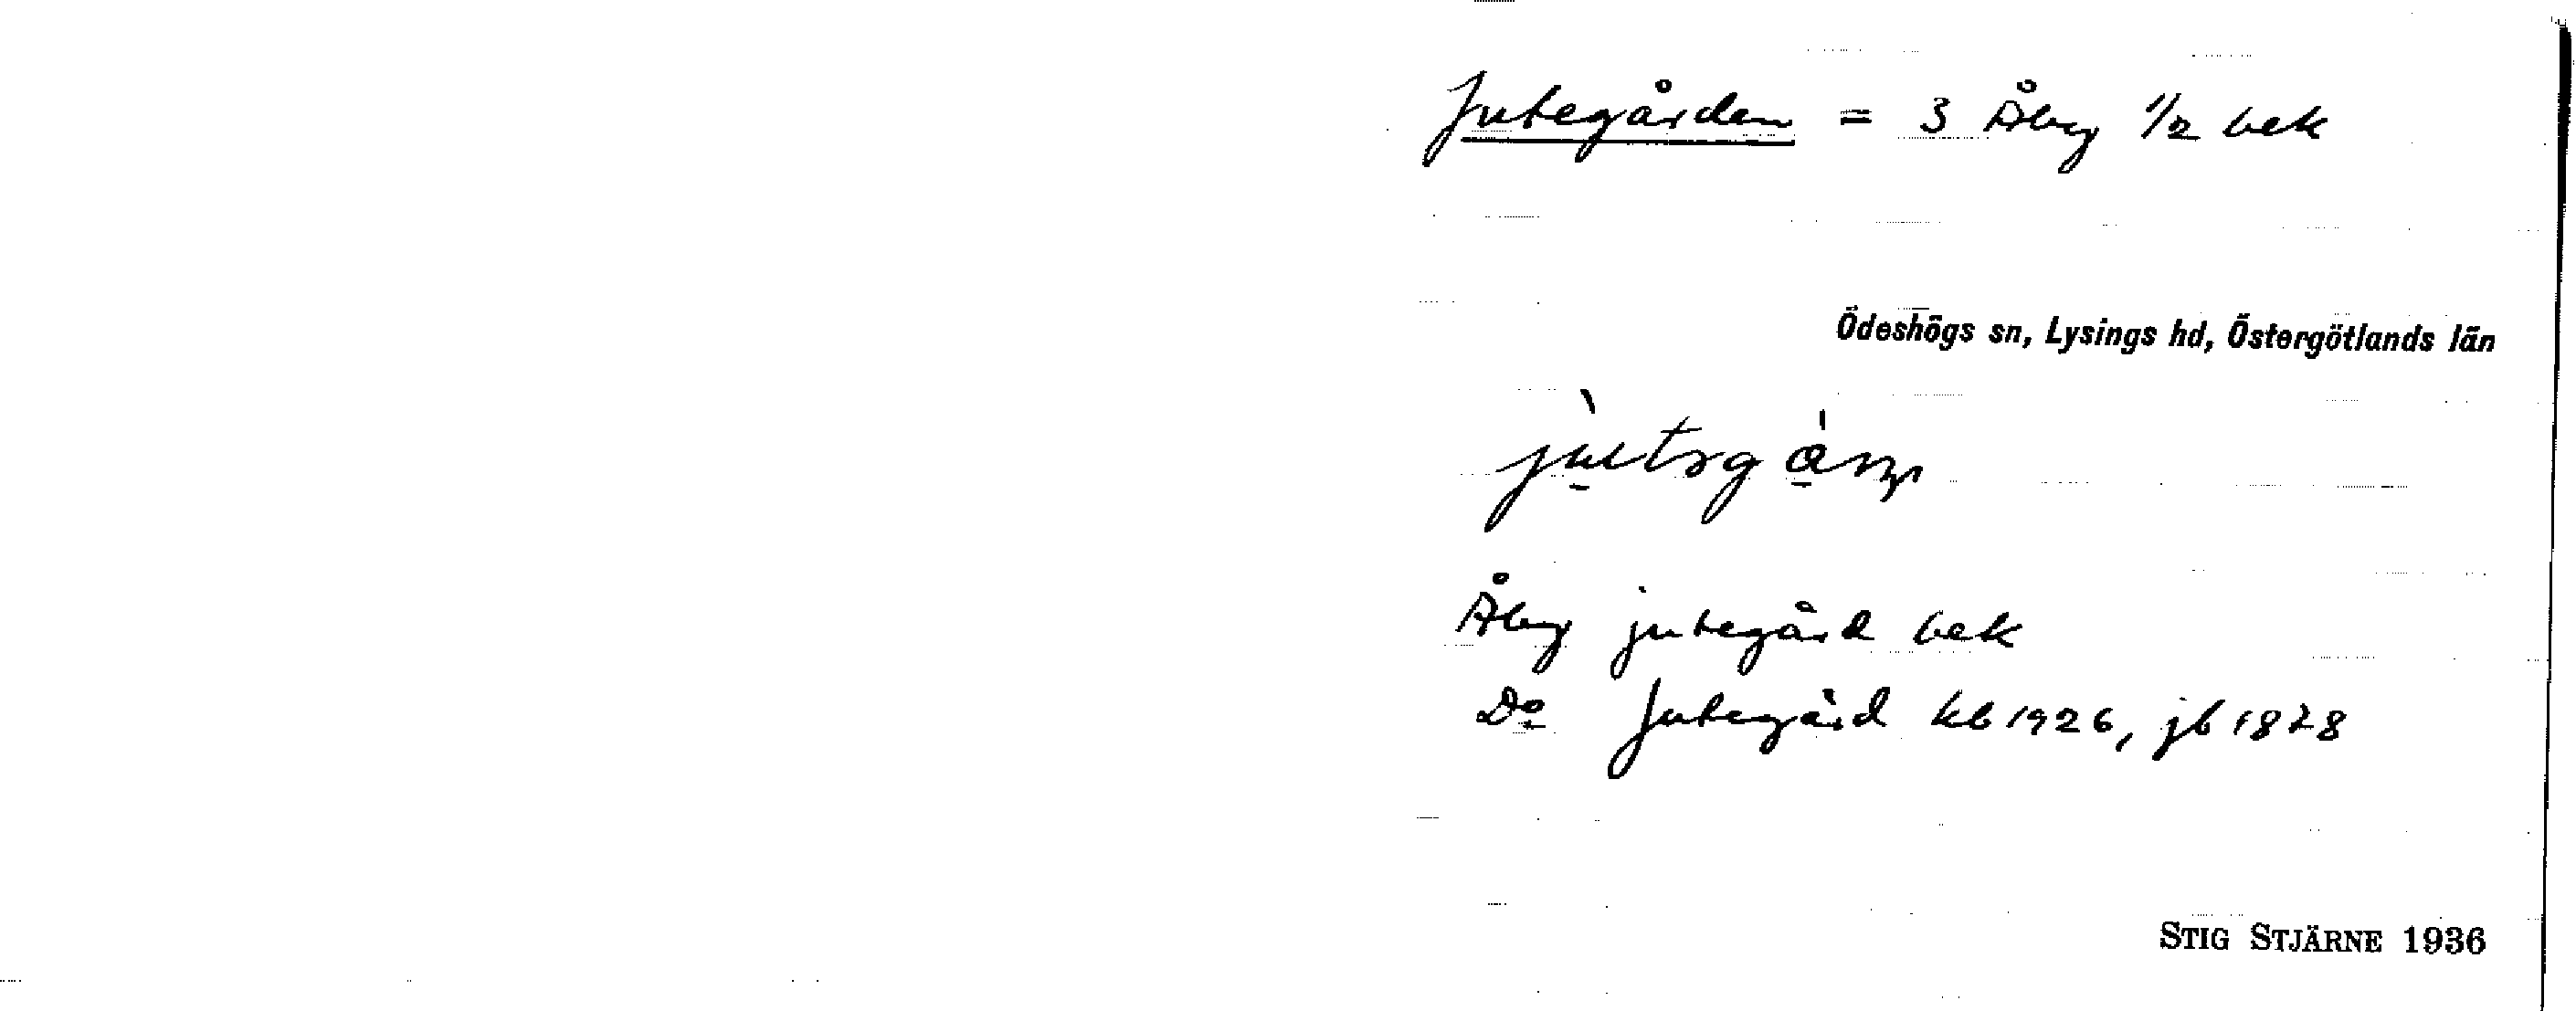 Jutegården = 3 Åby 1/2 bek
Ödeshögs sn, Lysings hd, Östergötlands län
Åby jutegård bek
Do Jutegård kb 1926, jb 1878
STIG STJÄRNE 1936